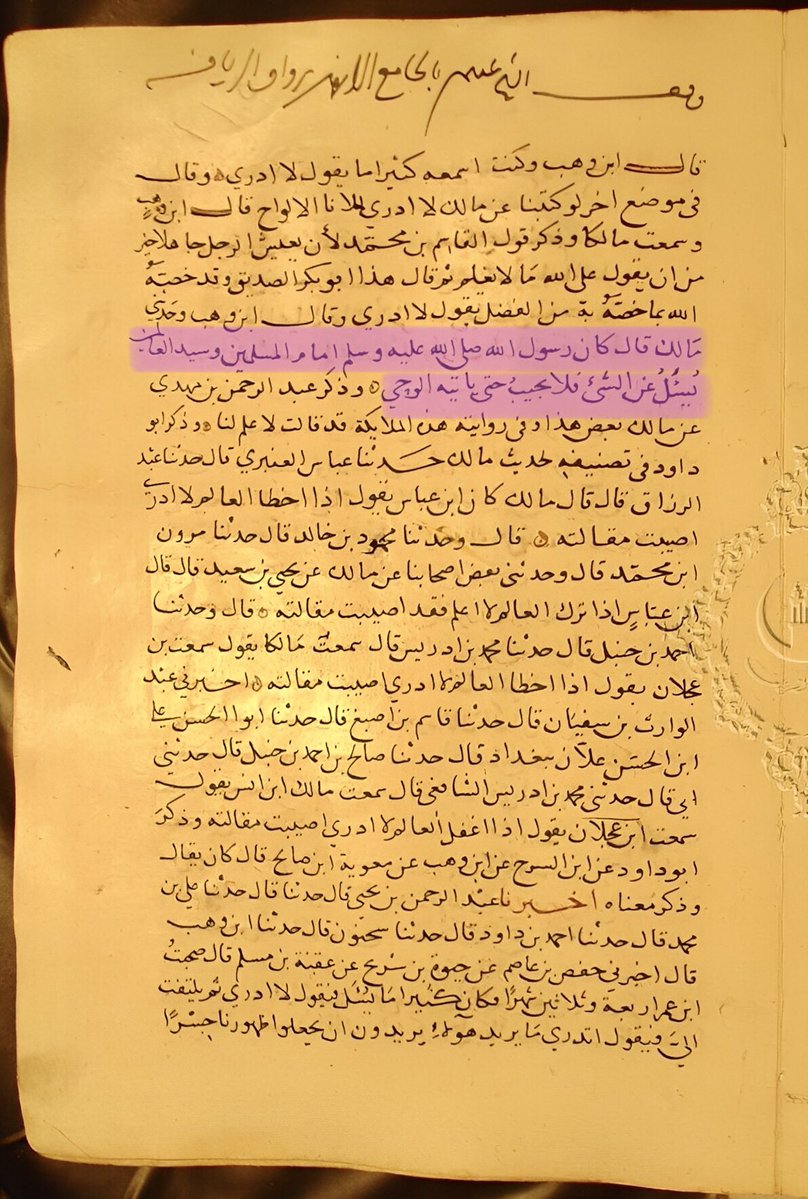 وقف الشيخ عليم بالجامع الازهر برواق الريافه
قال ابن وهب وكنت اسمعه كثيرا ما يقول لا ادري ه وقال
فى موضع اخر لو كتبنا عن مالك لا ادري لملانا الالواح قال ابن وهب
وسمعت مالكا وذكر قول القاسم بن محمّد لأن يعيش الرجل جاهلا خير
من ان يقول على الله مَا لا يعلم ثم قال هذا ابو بكر الصديق وقد خصّهُ
الله بما خصّهُ به من الفضل يقول لا ادري وقال ابن وهب وحدثني
مَالك قال كان رسول الله صلى الله عليه وسلم امام المسلمين وسيد العالمين
يُسئلُ عن الشئ فلا يجيبُ حتى ياتيه الوحي ه وذكر عبد الرحمن بن مهدي
عن مالك بعض هذا وفى روايته هذه الملايكة قد قالت لا علم لنا ه وذكر ابو
داود فى تصنيفه لحديث مالك حدثنا عباس العنبري قال حدثنا عبد
الرزاق قال قال مالك كان ابن عباس يقول اذا اخطا العالم لا ادري
اصيبت مقالته ه قال وحدثنا محمود بن خالد قال حدثنا مرون
ابن محمّد قال وحدثنى بعض اصحابنا عن مالك عن يحيى بن سعيد قال قال
ابن عبّاسٍ اذا ترك العالم لا اعلم فقد اصيبت مقالته ه قال وحدثنا
احمد بن حنبل قال حدثنا محمد بن ادريس قال سمعتُ مَالكا يقول سمعت بن
عجلان يقول اذا اخطا العالم لا ادري اصيبت مقالته ه اخبرني عبد
الوارث بن سفيَان قال حدثنا قاسم بن اصبغ قال حدثنا ابو الحسن على
ابن الحسَن علاّن ببغداد قال حدثنا صالح بن احمد بن حنبل قال حدثني
ابي قال حدثني محمد بن ادريس الشافعى قال سمعت مالك ابن انس يقول
سمعت ابن عجلان يقول اذا اغفل العالم لا ادري اصيبت مقالته وذكرَ
ابو داود عن ابن السرح عن ابن وهب عن معوية ابن صالح قال كان يقال
وذكر مَعناه اخبرنا عبْد الرحمن بن يحيى قال حدثنا قال حدثنا على بن
محمد قال حدثنا احمد بن داود قال حدثنا سحنون قال حدثنا ابن وهب
قال اخبرنى حفص بن عاصم عن حيوة بن شريح عن عقبة بن مسلم قال صحبتُ
ابن عمر اربعة وثلاثين شهرًا فكان كثيرا مَا يُسئل فيقول لا ادري ثم يلتفت
اليَّ فيقول اتدري مَا يريد هؤلاءِ يريدون ان يجعلوا ظهورنا جسْرًا